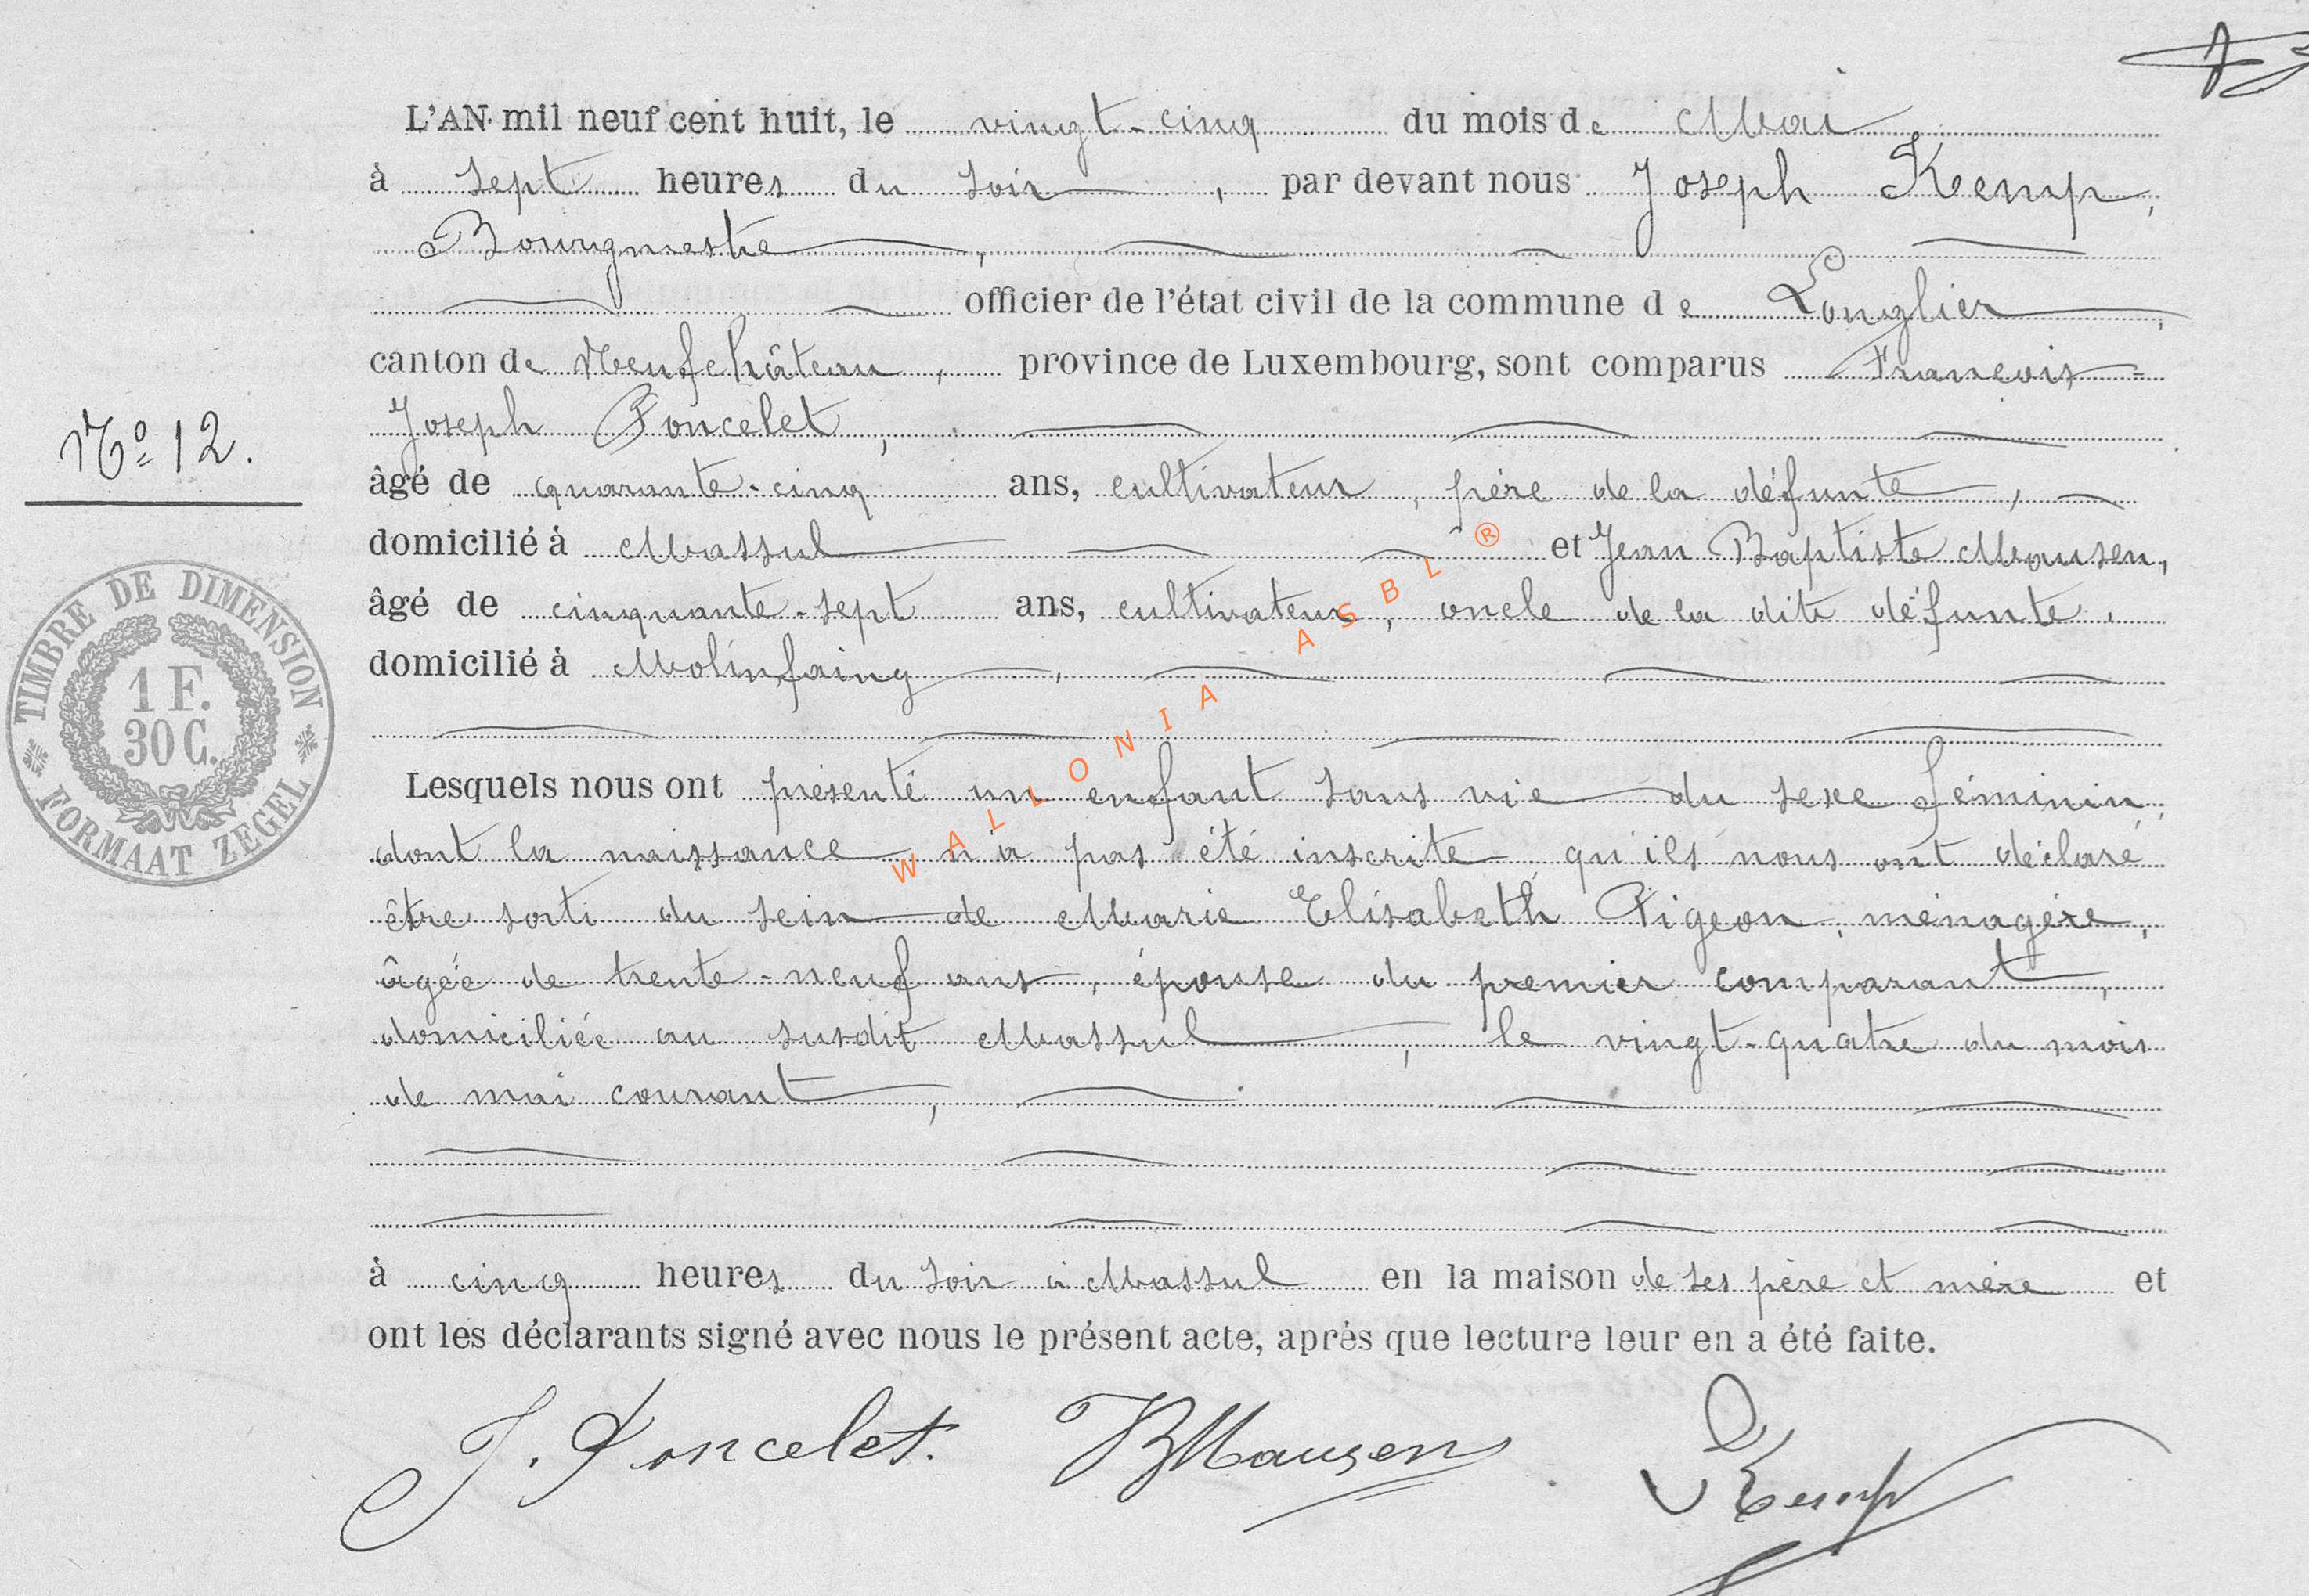 L'AN mil neuf cent huit, le vingt-cinq du mois de Mai
à sept heures du soir, par devant nous Joseph Kemp,
Bourgmestre,
officier de l'état civil de la commune de Longlier,
canton de Neufchâteau, province de Luxembourg, sont comparus François-
Joseph Poncelet,
N° 12.
âgé de quarante-cinq ans, cultivateur, père de la défunte,
domicilié à Massul et Jean Baptiste Mausen,
âgé de cinquante-sept ans, cultivateur, oncle de la dite défunte,
domicilié à Molinfaing,
TIMBRE DE DIMENSION
1 F.
30 C.
FORMAAT ZEGEL
Lesquels nous ont présenté un enfant sans vie du sexe féminin,
dont la naissance n'a pas été inscrite, qu'ils nous ont déclaré
être sorti du sein de Marie Elisabeth Pigeon, ménagère,
âgée de trente-neuf ans, épouse du premier comparant,
domiciliée au susdit Massul, le vingt-quatre du mois
de mai courant,
à cinq heures du soir à Massul en la maison de ses père et mère et
ont les déclarants signé avec nous le présent acte, après que lecture leur en a été faite.
J. Poncelet. JBMausen JKemp
WALLONIA ASBL ®